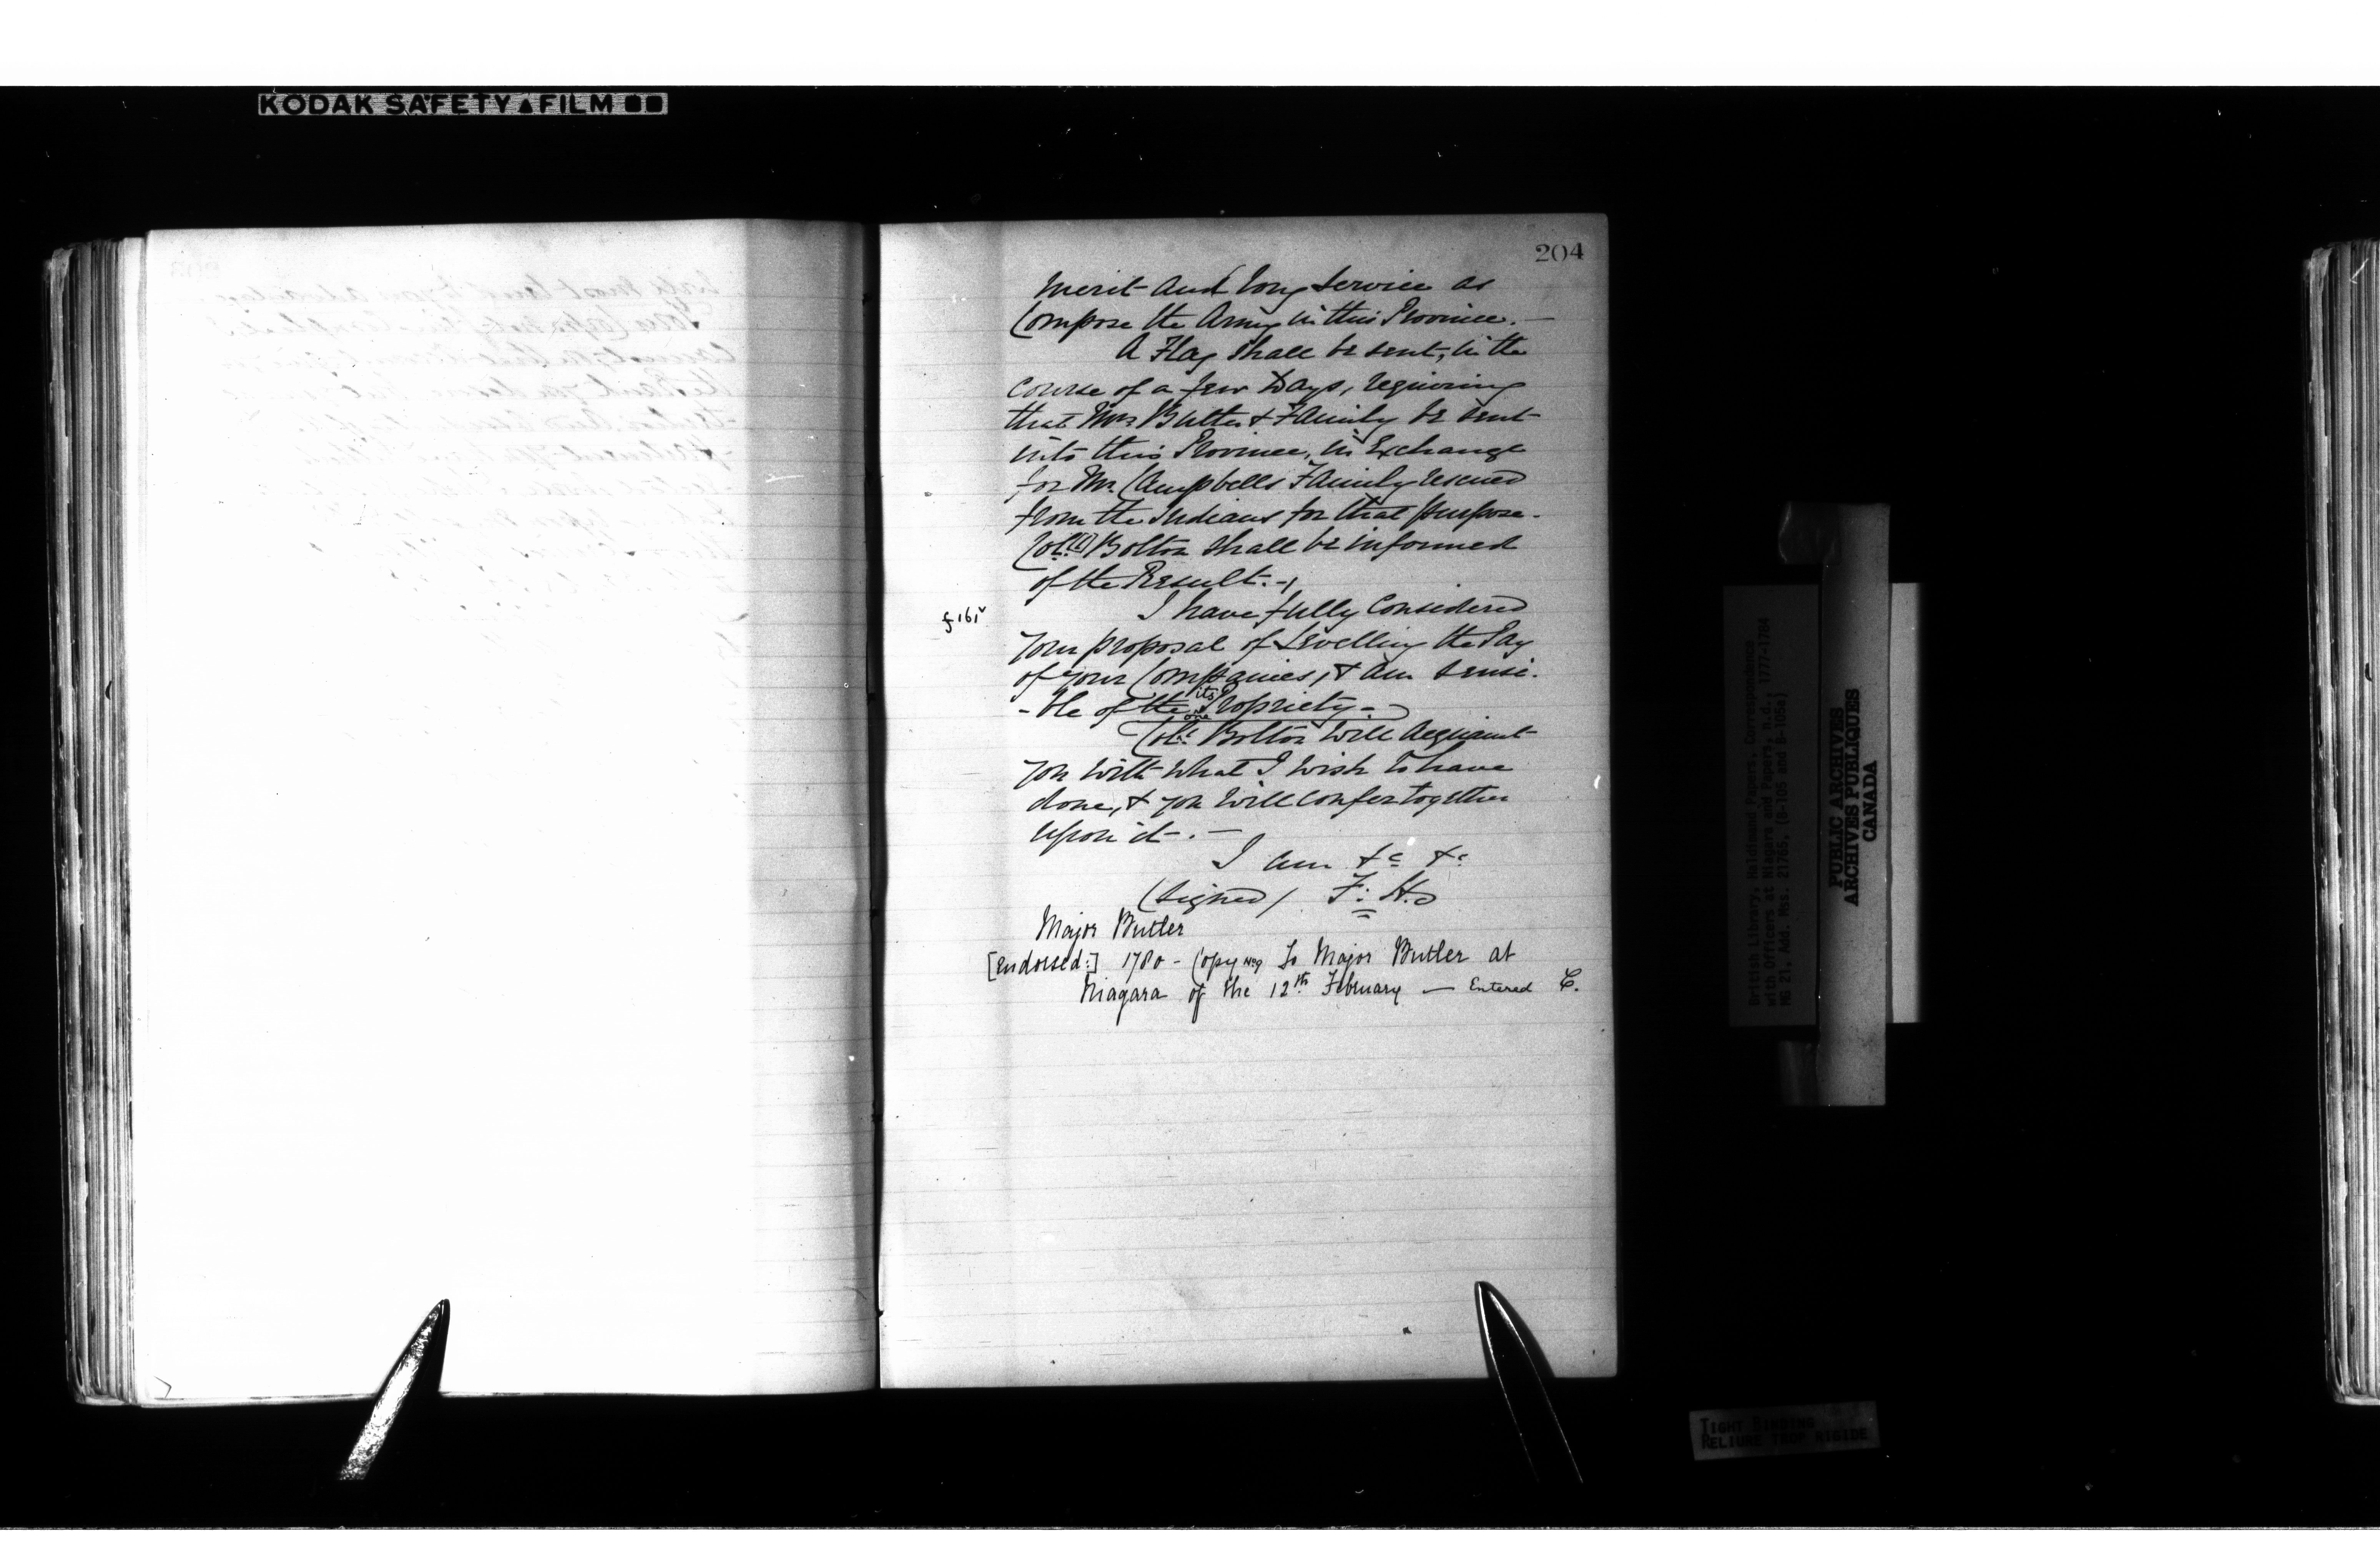 KODAK SAFETY FILM
204
Merit and long service as
Compose the Army in this Province. —
A Flag shall be sent, in the
course of a few Days, requiring
that Mrs Butler & Family be sent
into this Province, in Exchange
for Mr. Campbells Family rescued
from the Indians for that purpose.
Col. Bolton shall be informed
of the Result. -,
f 161v
I have fully Considered
your proposal of Levelling the Pay
of your Companies, & am sensi-
-ble of the its Propriety -
one
Col. Bolton will acquaint
you with what I wish to have
done, & you will confer together
upon it. —
I am &c &c
(signed) F: H.
Major Butler
[Endorsed:] 1780 - Copy No 9 To Major Butler at
Niagara of the 12th February — Entered C.
British Library, Haldimand Papers, Correspondence
with Officers at Niagara and Papers, n.d., 1777-1784
MG 21, Add. Mss. 21765, (B-105 and B-105a)
PUBLIC ARCHIVES
ARCHIVES PUBLIQUES
CANADA
TIGHT BINDING
RELIURE TROP RIGIDE